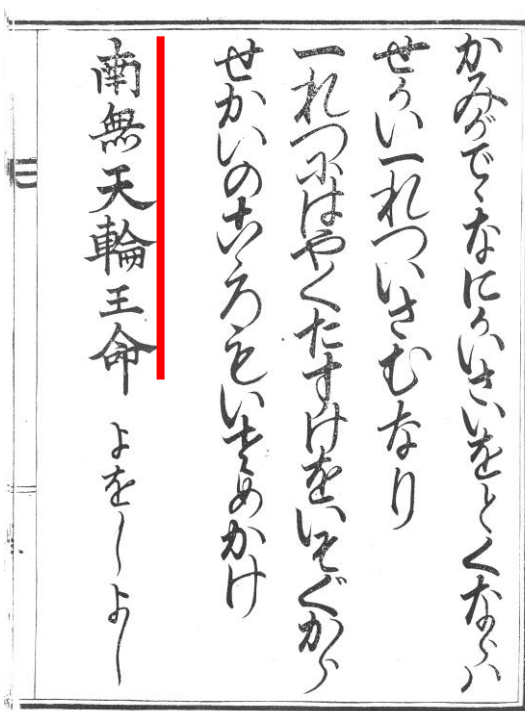 かみがでゝなにかいさいをとくならハ
せかい一れついさむなり
一れつにはやくたすけをいそぐから
せかいのこゝろもいさめかけ
南無天輪王命 よを〳〵よ〳〵